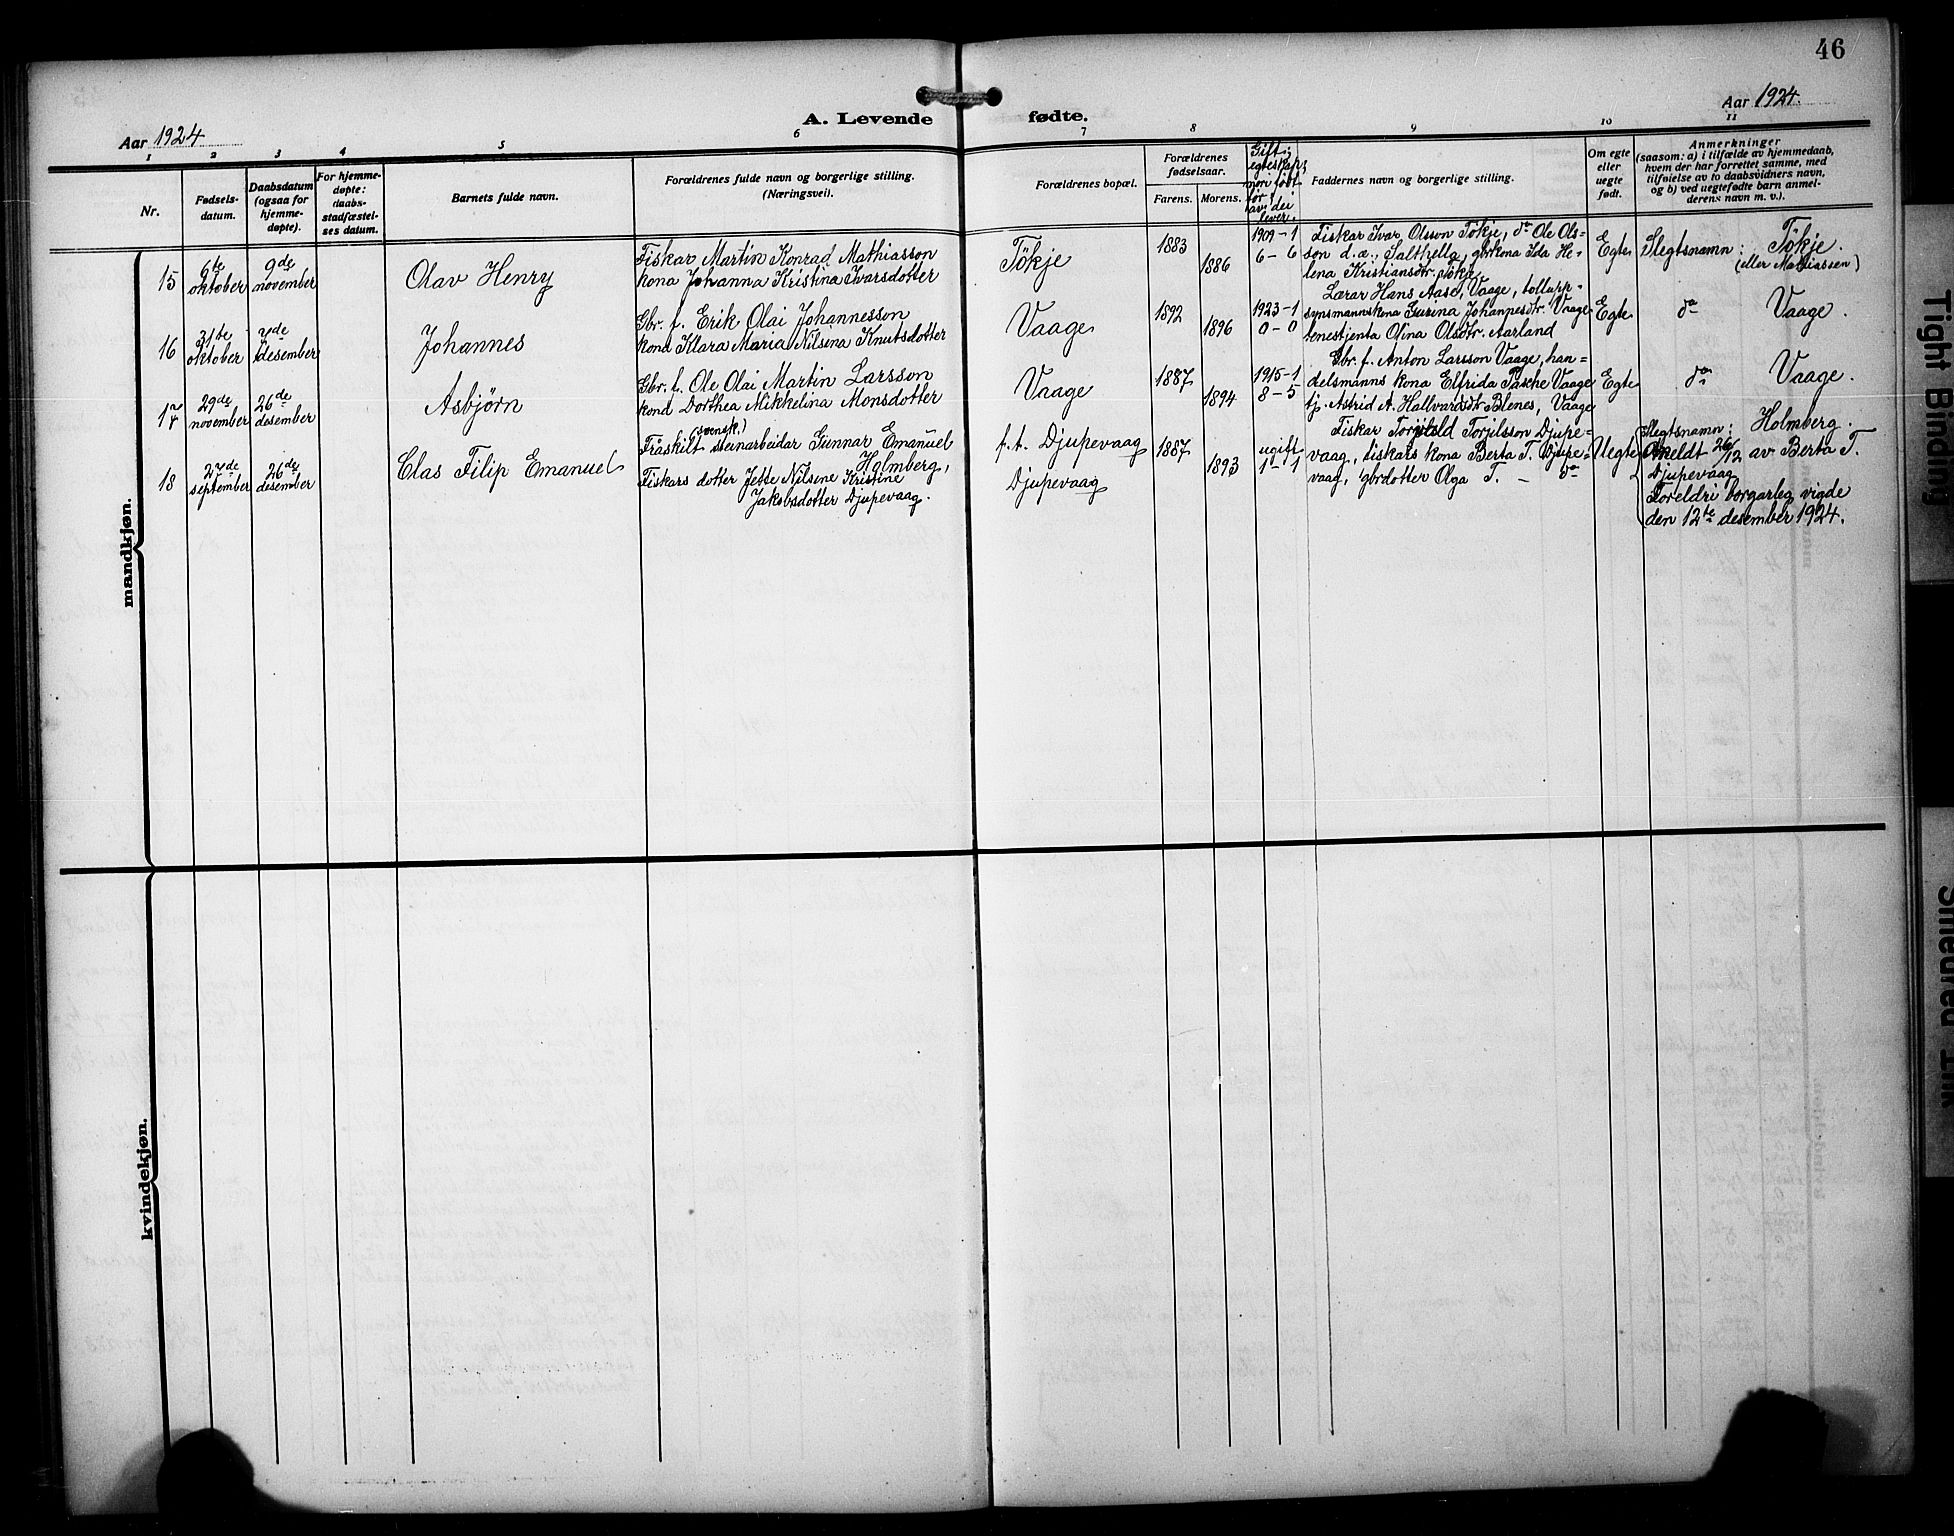 46
Aar 1924
A. Levende fødte.
Aar 1924.
1 2 3 4 5 6 7 8 9 10 11
Nr.
Fødsels-
datum.
Daabsdatum
(ogsaa for
hjemme-
døpte).
For hjemme-
døpte:
daabs-
stadfæstel-
ses datum.
Barnets fulde navn.
Forældrenes fulde navn og borgerlige stilling.
(Næringsvei).
Forældrenes bopæl.
Forældrenes
fødselsaar.
Farens. Morens.
Faddernes navn og borgerlige stilling.
Om egte
eller
uegte
født.
Anmerkninger
(saasom: a) i tilfælde av hjemmedaab,
hvem der har forrettet samme, med
tilføielse av to daabsvidners navn,
og b) ved uegtefødte barn anmel-
derens navn m. v.).
mandkjøn.
15
6te
oktober
9de
november
Olav Henry
Fiskar Martin Konrad Mathiasson
kona Johanna Kristina Ivarsdotter
Tökje
1883
1886
1909 - 1
6 - 6
Fiskar Ivar Olsson Tökje, do Ole Ols-
son d.æ., Salthella, gbrkona Ida He-
lena Kristiansdtr. Tökje
Egte
Slegtsnamn: Tökje.
(eller Mathiassen)
16
31te
oktober
7de
desember
Johannes
Gbr. f. Erik Olai Johannesson
kona Klara Maria Nilsina Knutsdotter
Vaage
1892
1896
1923 - 1
0 - 0
Lærar Hans Aase, Vaage, tollupp-
synsmannskona Gurina Johannesdtr. Vaage
tenestjenta Olina Olsdtr. Aarland
Egte
do Vaage.
17
29de
november
26de
desember
Asbjørn
Gbr. f. Ole Olai Martin Larsson
kona Dorthea Mikkelina Monsdotter
Vaage
1887
1894
1915 - 1
8 - 5
Gbr. f. Anton Larsson Vaage, han-
delsmanns kona Elfrida Paske Vaage
tj. Astrid A. Hallvardsdtr. Blenes, Vaage
Egte
do Vaage.
18
27de
september
26de
desember
Clas Filip Emanuel
(svensk.)
Fråskilt steinarbeidar Gunnar Emanuel
Holmberg,
Fiskars dotter Jette Nilsene Kristine
Jakobsdotter Djupevaag.
f.t. Djupevaag
Djupevaag
1887
1893
ugift
1 - 1
Fiskar Torjild Torjilsson Djupe-
vaag, fiskars kona Berta T. Djupe-
vaag, gbrdotter Olga T. - do
Uegte
Slegtsnamn: Holmberg.
Meldt 26/12 av Berta T.
Djupevaag
Foreldri borgarleg vigde
den 12te desember 1924.
kvindekjøn.
Tight Binding
Smeared Ink